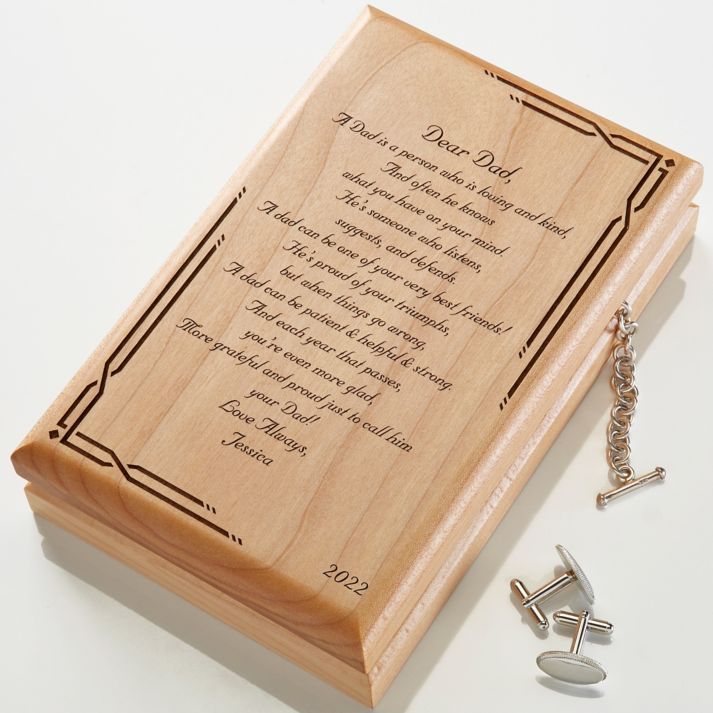 Dear Dad,
A Dad is a person who is loving and kind,
And often he knows
what you have on your mind.
He's someone who listens,
suggests, and defends.
A dad can be one of your very best friends!
He's proud of your triumphs,
but when things go wrong,
A dad can be patient & helpful & strong.
And each year that passes,
you're even more glad,
More grateful and proud just to call him
your Dad!
Love Always,
Jessica
2022